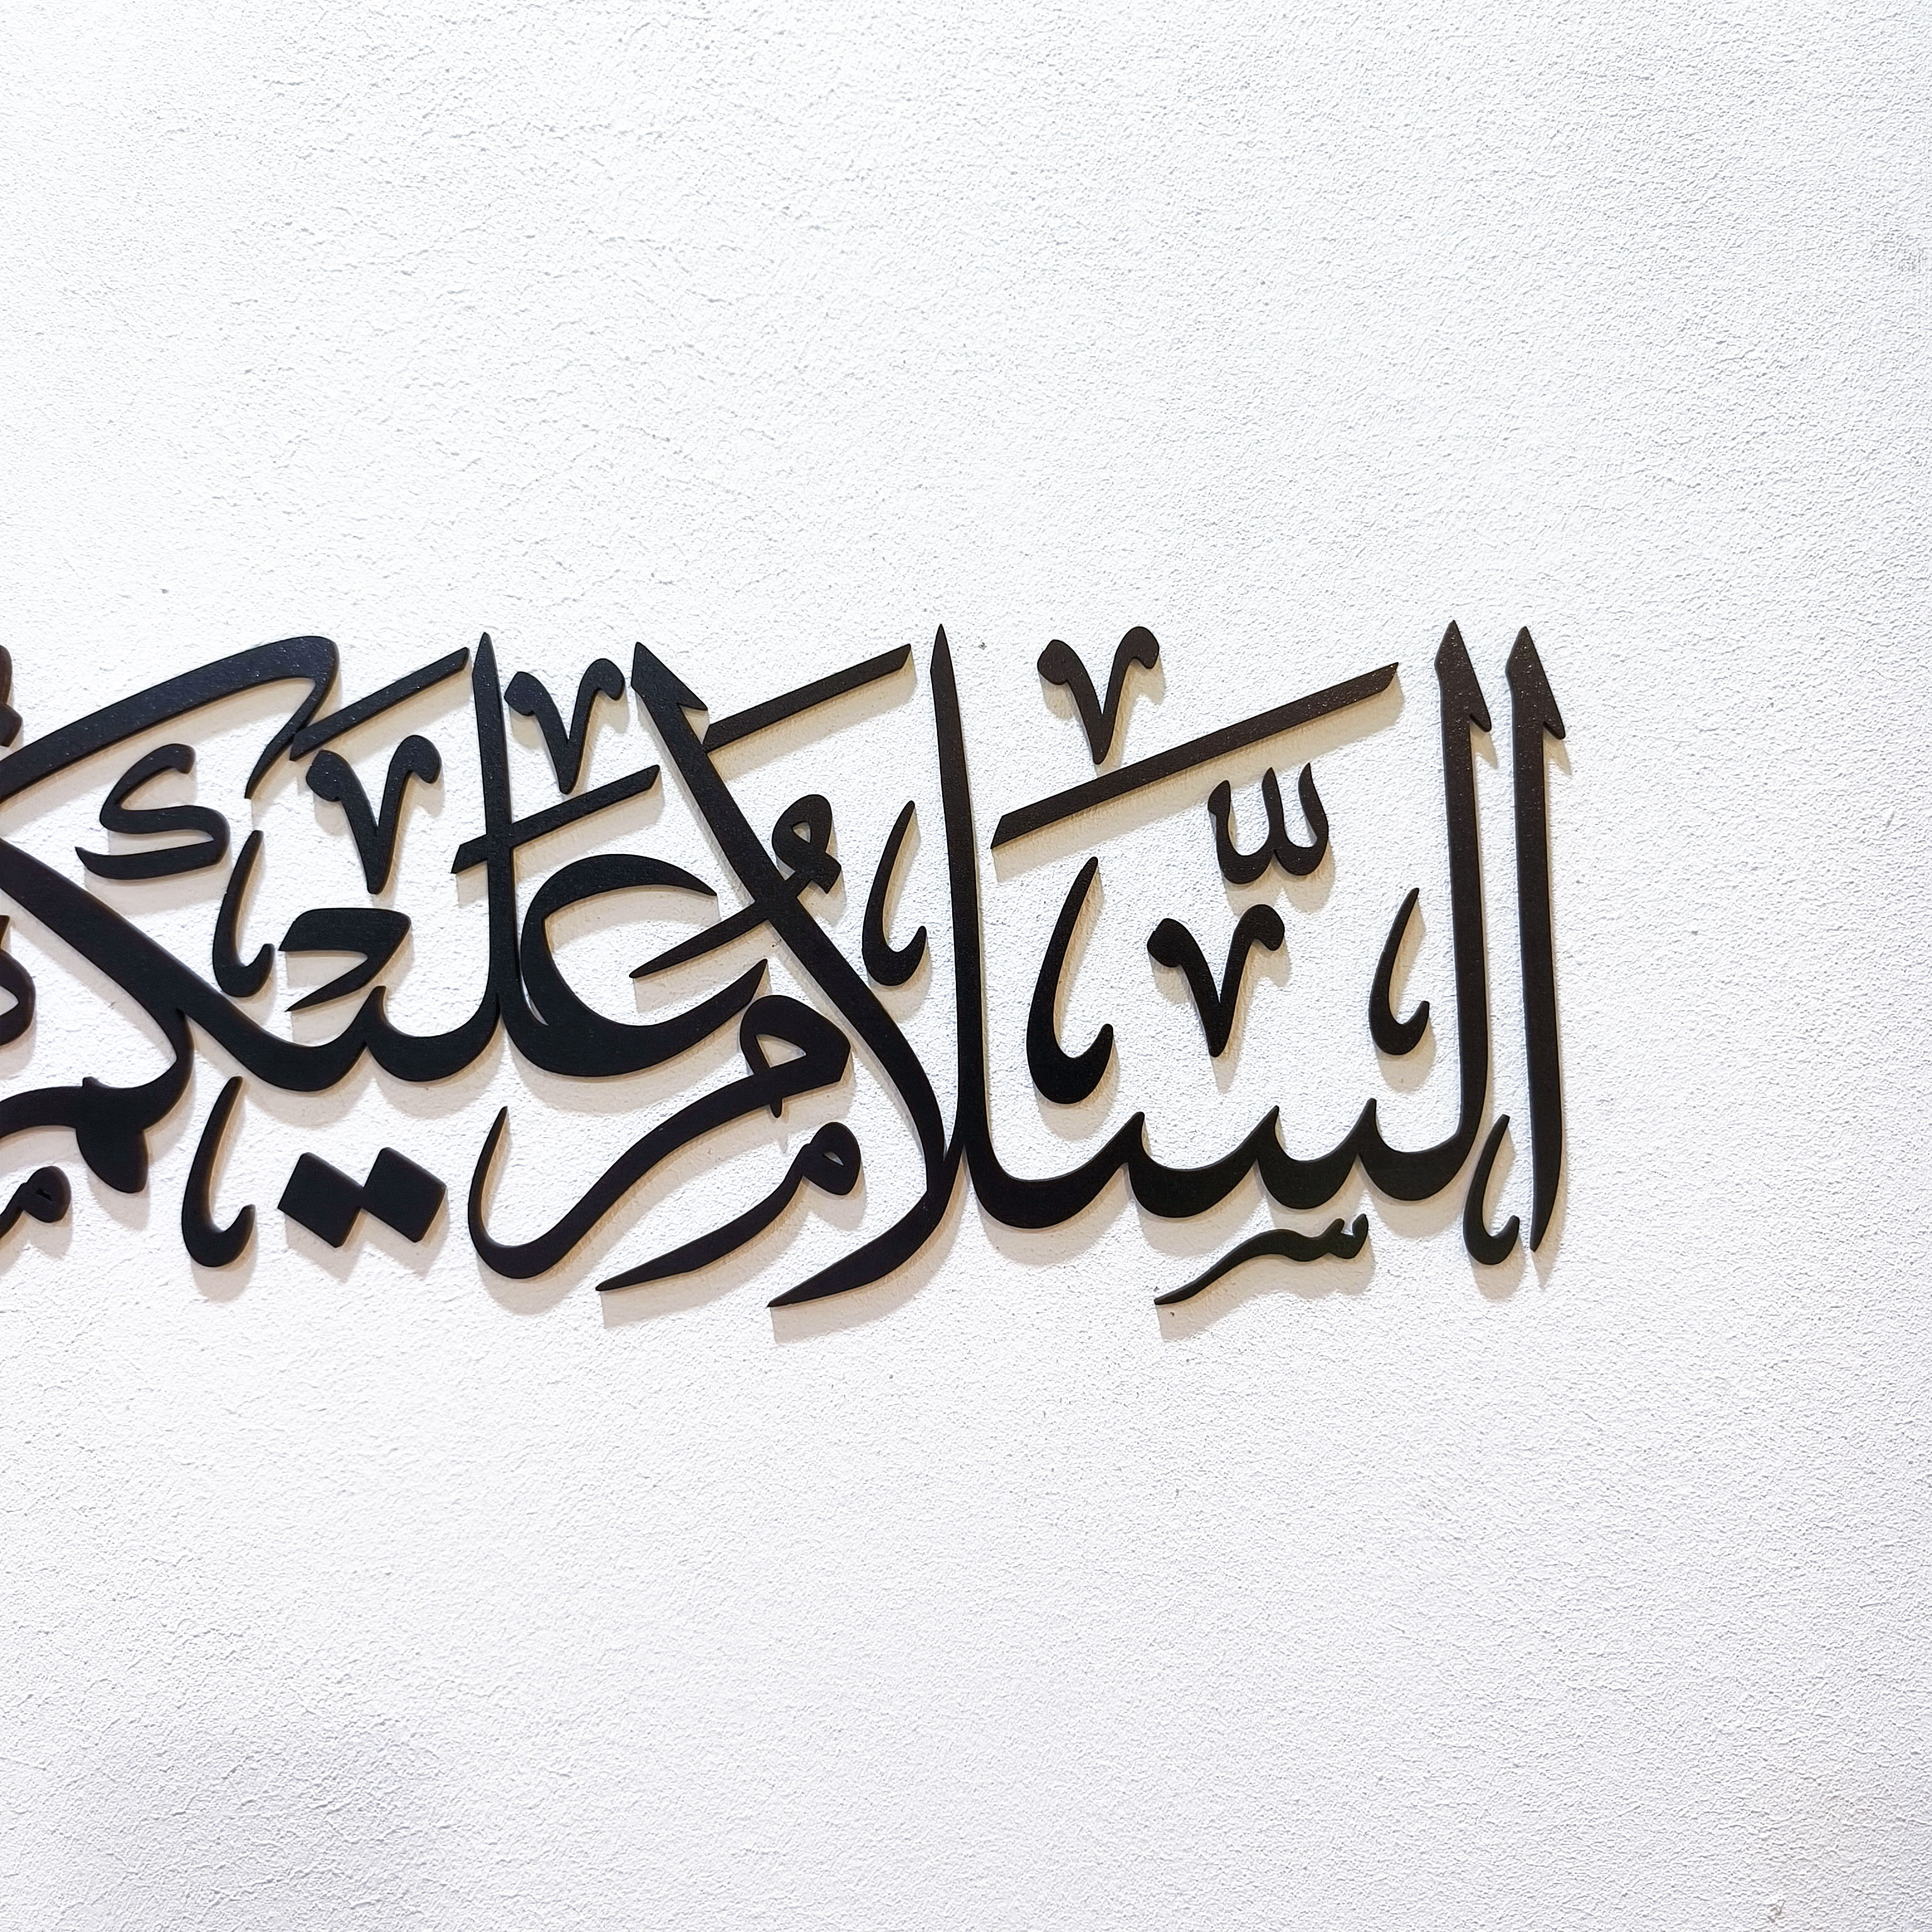 السَّلَامُ عَلَيْكُم